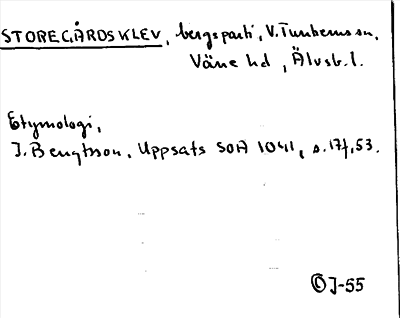 STOREGÅRDSKLEV, bergsparti, V. Tunhems sn,
Väne hd, Älvsb. l.
Etymologi,
J. Bengtsson, Uppsats SOA 1041, s. 17f, 53.
ÖJ-55